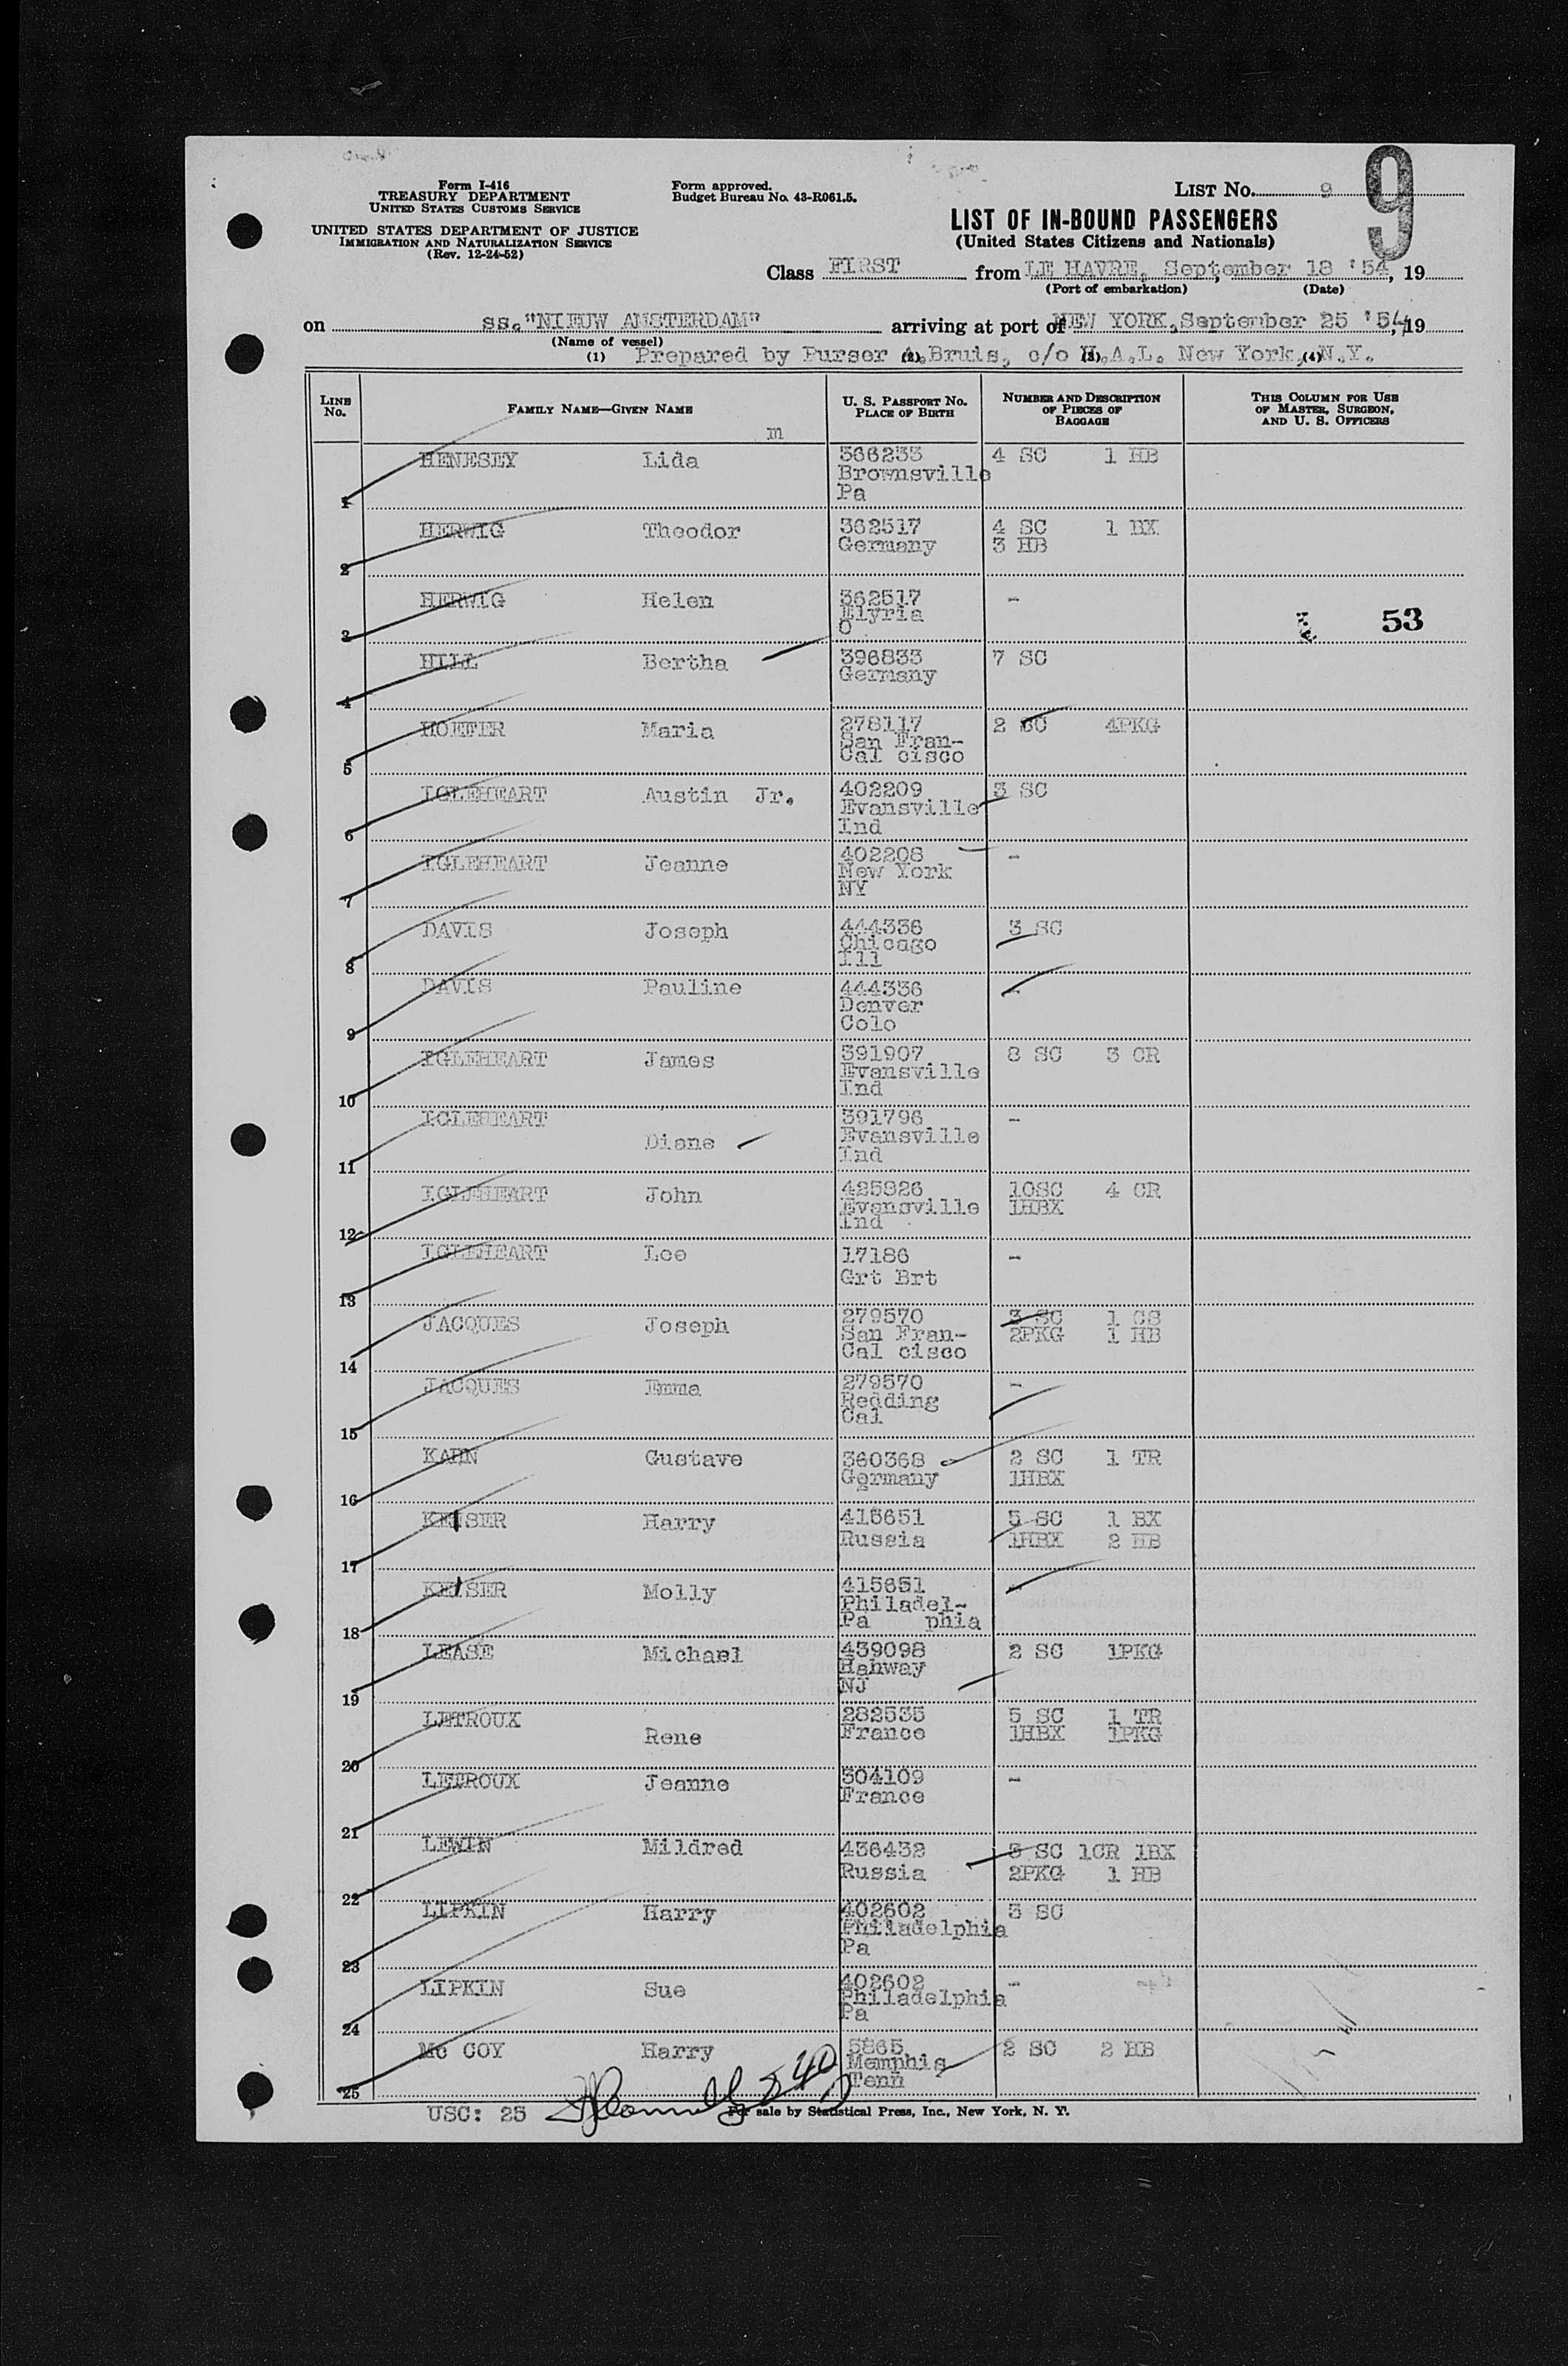 Form I-416
TREASURY DEPARTMENT
UNITED STATES CUSTOMS SERVICE
UNITED STATES DEPARTMENT OF JUSTICE
IMMIGRATION AND NATURALIZATION SERVICE
(Rev. 12-24-52)
Form approved.
Budget Bureau No. 43-R061.5.
LIST NO. 9
9
LIST OF IN-BOUND PASSENGERS
(United States Citizens and Nationals)
Class FIRST from LE HAVRE, September 18 '54, 19
(Port of embarkation) (Date)
on ss."NIEUW AMSTERDAM" arriving at port of NEW YORK, September 25 '54, 19
(Name of vessel)
(1) Prepared by Purser (2) Bruis, c/o (3) H.A.L. New York, (4) N.Y.
LINE NO. FAMILY NAME—GIVEN NAME U. S. PASSPORT NO. PLACE OF BIRTH NUMBER AND DESCRIPTION OF PIECES OF BAGGAGE THIS COLUMN FOR USE OF MASTER, SURGEON, AND U. S. OFFICERS
m
1 HENESEY Lida 366233 4 SC 1 HB
Brownsville
Pa
2 HERWIG Theodor 362517 4 SC 1 BX
Germany 3 HB
3 HERWIG Helen 362517 -
Elyria
O
53
4 HILL Bertha 396833 7 SC
Germany
5 HOEFER Maria 278117 2 SC 4PKG
San Fran-
Cal cisco
6 IGLEHEART Austin Jr. 402209 3 SC
Evansville
Ind
7 IGLEHEART Jeanne 402208 -
New York
NY
8 DAVIS Joseph 444336 3 SC
Chicago
Ill
9 DAVIS Pauline 444336 -
Denver
Colo
10 IGLEHEART James 391907 8 SC 3 CR
Evansville
Ind
11 IGLEHEART Diane 391796 -
Evansville
Ind
12 IGLEHEART John 425926 10SC 4 CR
Evansville 1HBX
Ind
13 IGLEHEART Lee 17186 -
Grt Brt
14 JACQUES Joseph 279570 3 SC 1 CS
San Fran- 2PKG 1 HB
Cal cisco
15 JACQUES Emma 279570 -
Redding
Cal
16 KAHN Gustave 360368 2 SC 1 TR
Germany 1HBX
17 KEISER Harry 415651 5 SC 1 BX
Russia 1HBX 2 HB
18 KEISER Molly 415651 -
Philadel-
Pa phia
19 LEASE Michael 439098 2 SC 1PKG
Rahway
NJ
20 LETROUX Rene 282535 5 SC 1 TR
France 1HBX 1PKG
21 LETROUX Jeanne 304109 -
France
22 LEWIN Mildred 436432 3 SC 1CR 1BX
Russia 2PKG 1 HB
23 LIPKIN Harry 402602 3 SC
Philadelphia
Pa
24 LIPKIN Sue 402602 -
Philadelphia
Pa
25 Mc COY Harry 5865 2 SC 2 HB
Memphis
Tenn
USC: 25
For sale by Statistical Press, Inc., New York, N. Y.